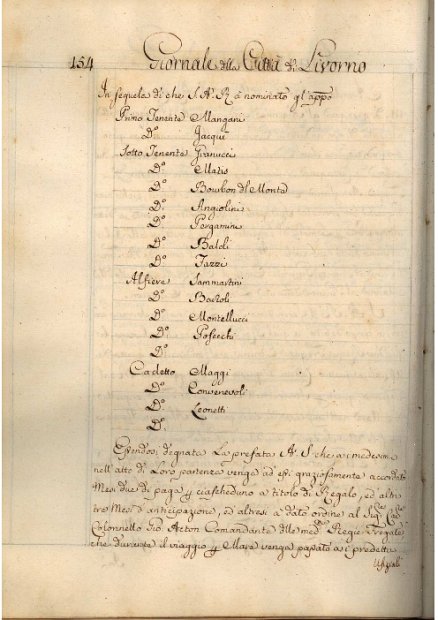 154 Giornale della Città di Livorno
In sequela di che S. A. R. à nominato gl'appo
Primo Tenente Mangani
Do. Jacque
Sotto Tenente Granucci
Do. Matis
Do. Bourbon del Monte
Do. Angiolini
Do. Pergamini
Do. Baldi
Do. Fazzi
Alfiere Sammartini
Do. Bartoli
Do. Montellucci
Do.
Do.
Cadetto Maggi
Do. Convenevoli
Do. Leonetti
Do.
Essendosi degnata La prefata A. S. che a medesimi
nell'atto di Loro partenza venga ad essi graziosamente accordato
Mesi due di paga ciascheduno a titolo di Regalo, ed altri
tre Mesi d'anticipazione, ed altresì a dato ordine al
Colonnello Gio. Acton Comandante delle Regie Fregate
che durante il viaggio Mare venga passato a i predetti